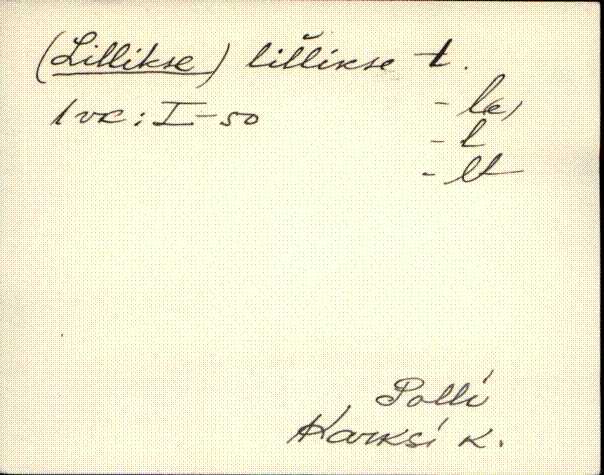 (Lillikse) lillikse t.
1 vk: I-50 - l(e)
- l
- lt
Polli
Karksi k.